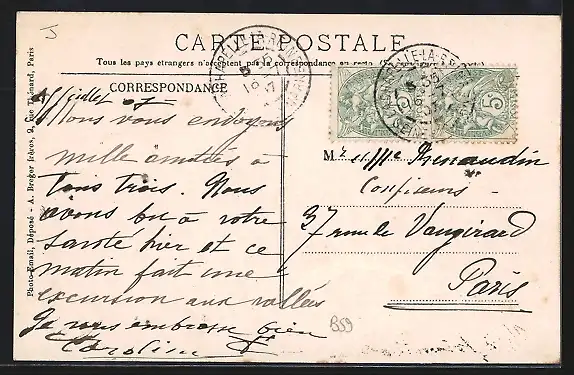 J
CARTE POSTALE
Tous les pays étrangers n'acceptent pas la correspondance au recto
CORRESPONDANCE
Juillet 07
Nous vous envoyons
mille amitiés à
tous trois. Nous
avons bu à votre
santé hier et ce
matin fait une
excursion aux vallées
Je vous embrasse bien
Caroline
Mr et Mme Renaudin
Confiseurs
37 rue de Vaugirard
Paris
B59
5
5
Photo-Email, Déposé - A. Breger frères, 9, rue Thénard, Paris